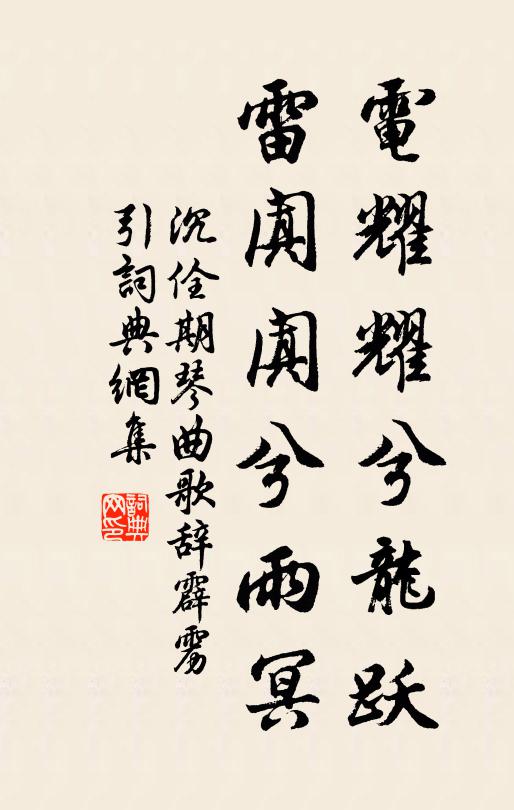 電耀耀兮龍跃
雷阗阗兮雨冥
沉佺期琴曲歌辞霹雳
引詞典網集
詞典网印